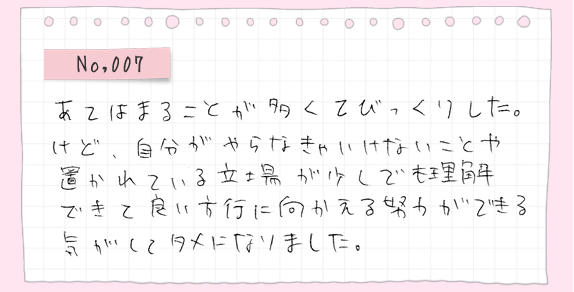 No,007
あてはまることが多くてびっくりした。
けど、自分がやらなきゃいけないことや
置かれている立場が少しでも理解
できて良い方行に向かえる努力ができる
気がしてタメになりました。